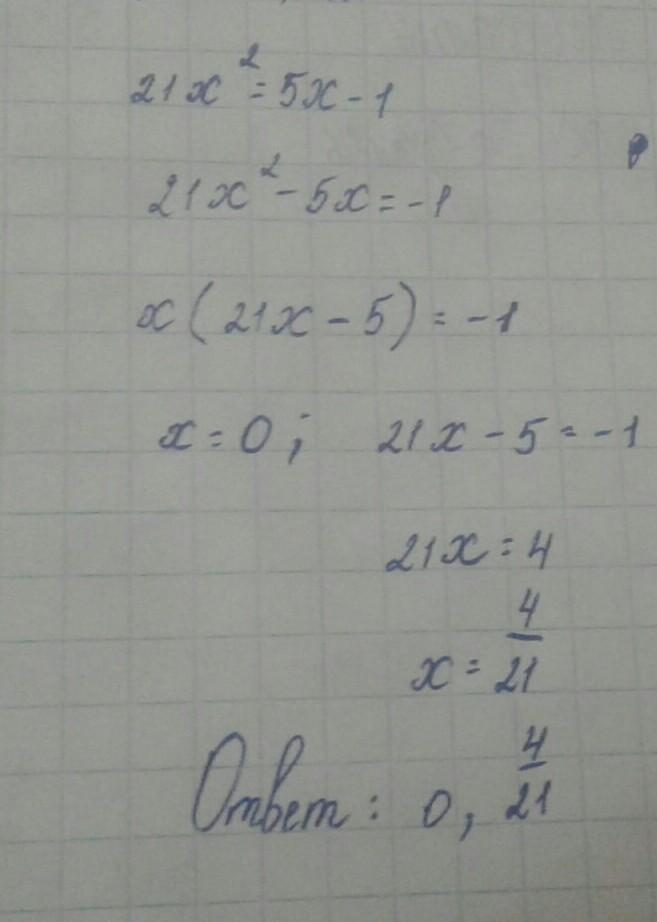 21x² = 5x - 1
21x² - 5x = -1
x(21x - 5) = -1
x = 0; 21x - 5 = -1
21x = 4
x = 4/21
Ответ: 0, 4/21